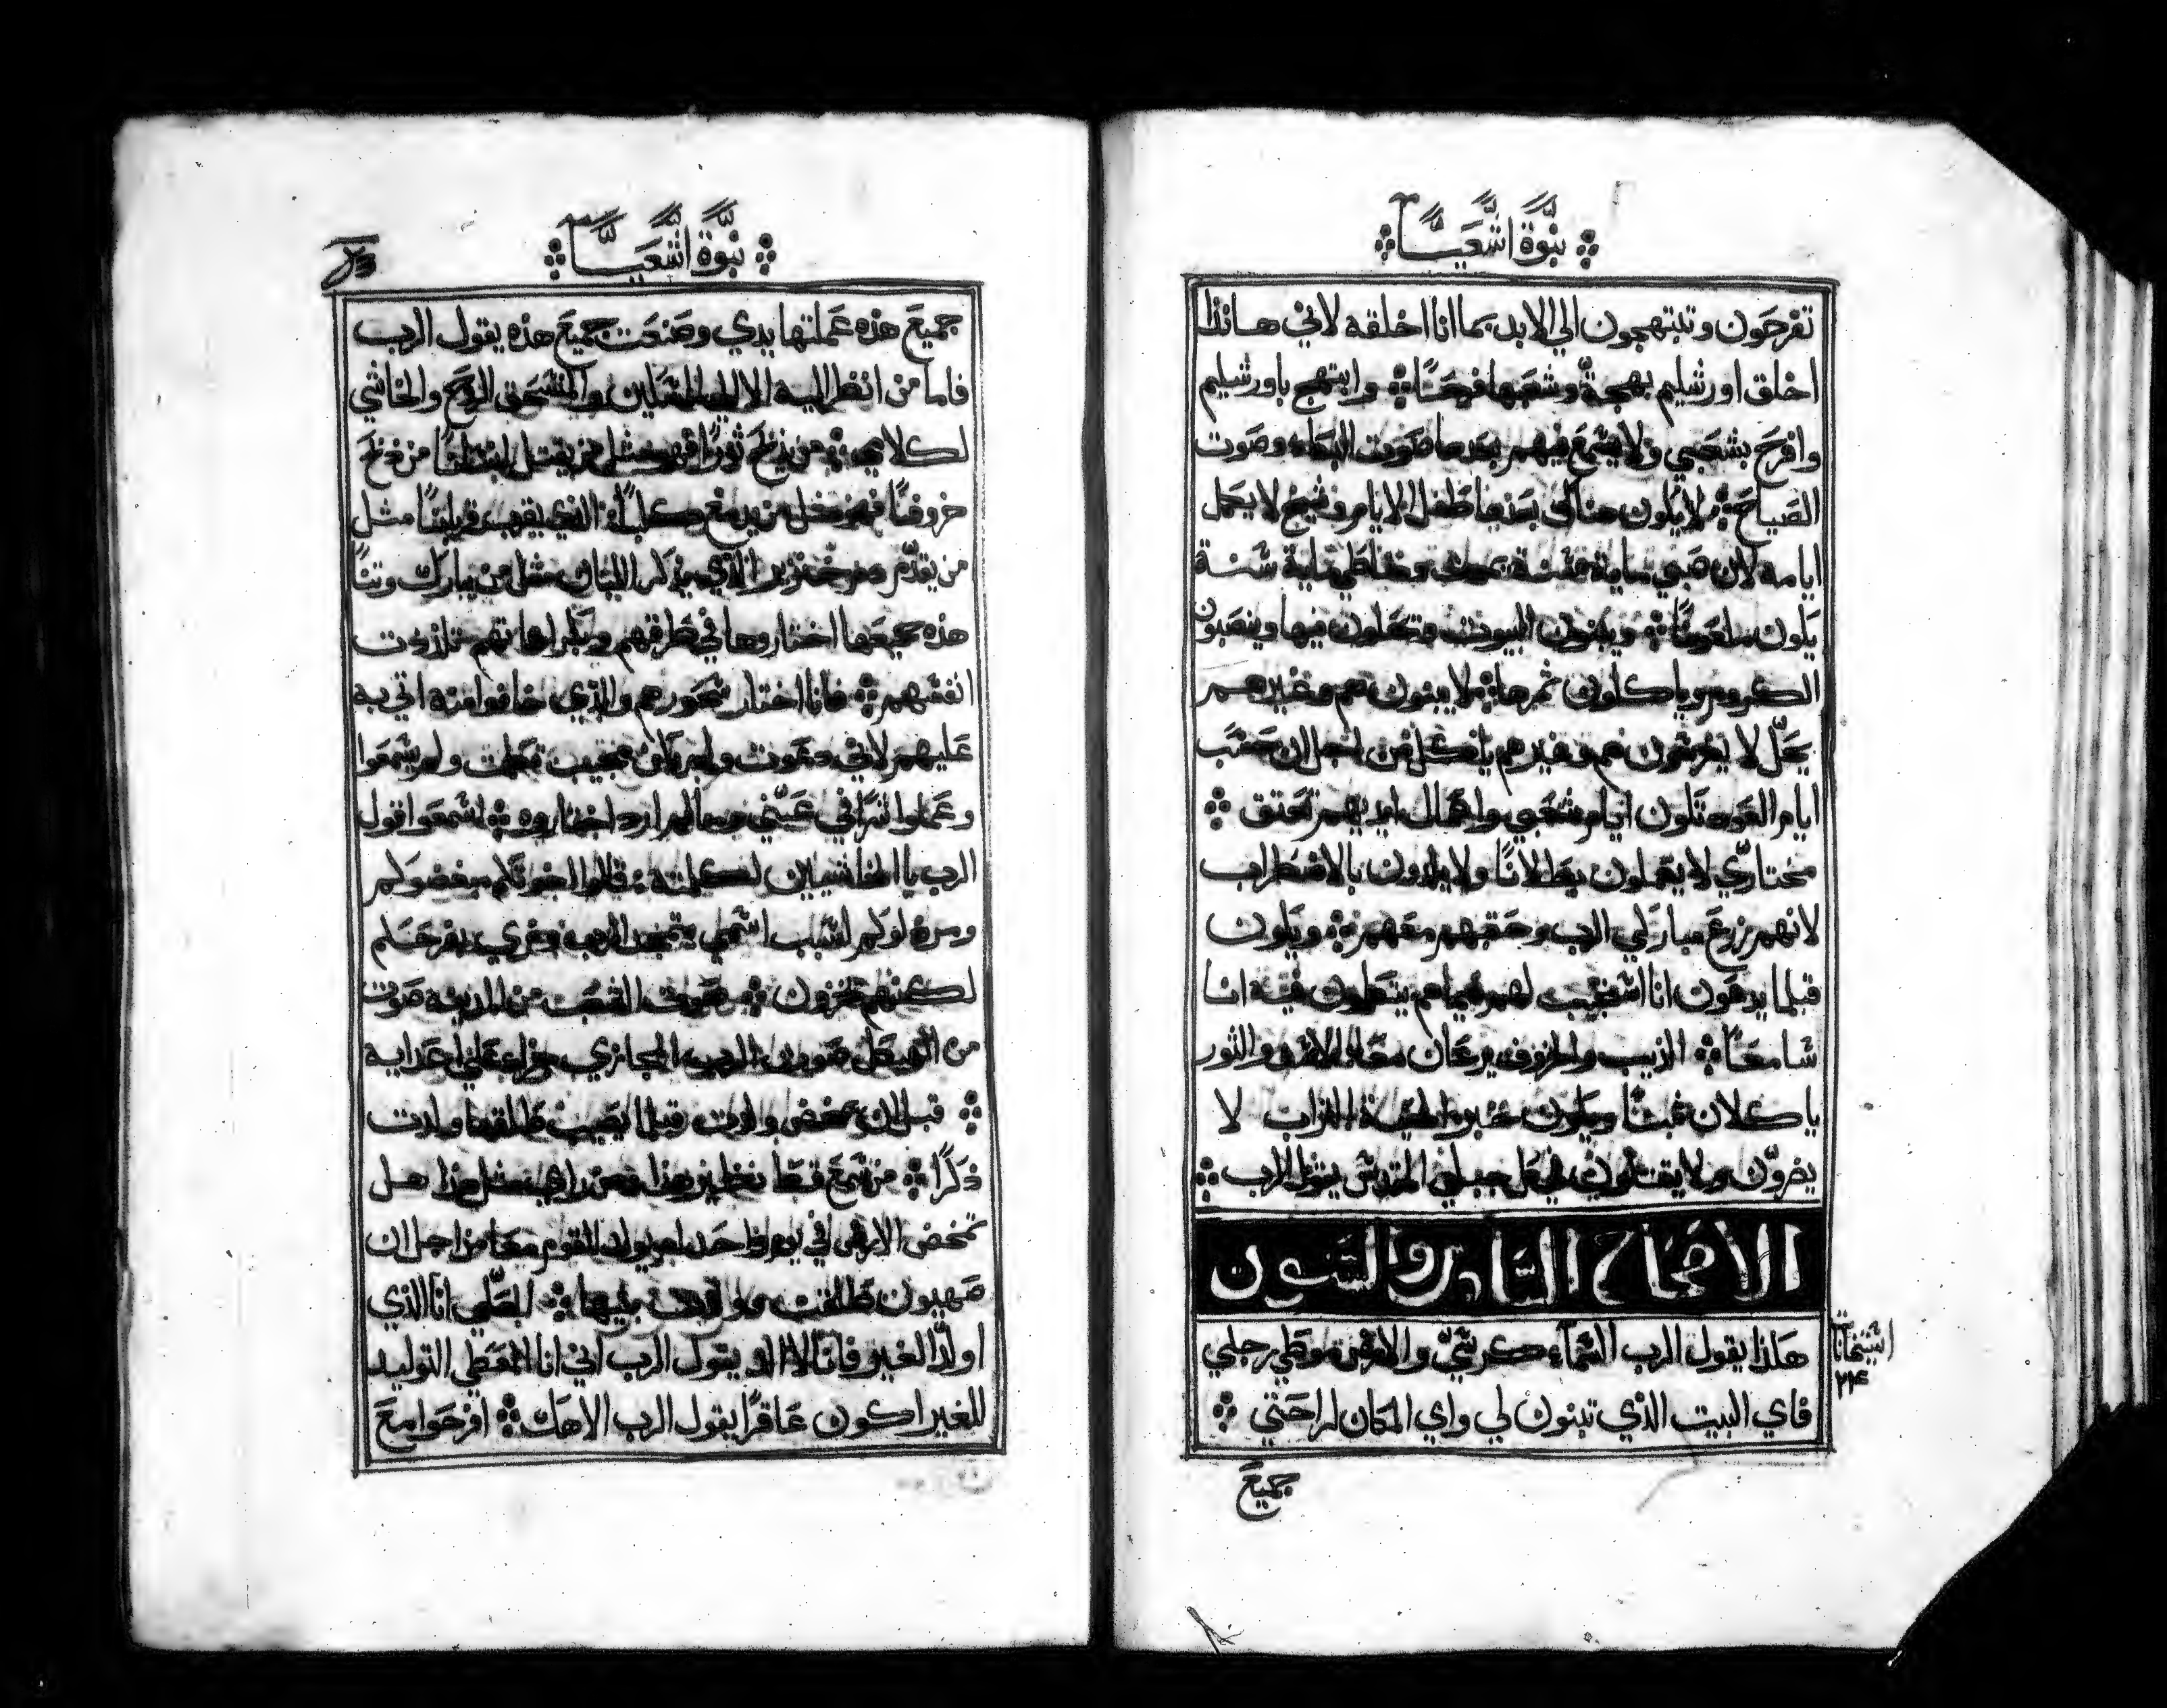 نبوة اشعيا
تفرحون وتبتهجون الي الابد بما انا اخلقه لاني هانذا
اخلق اورشليم بهجةً وشعبها فرحًا وابتهج باورشليم
وافرح بشعبي ولا يسمع فيهم بعدها صوت البكاء وصوت
الصياح لا يكون هناك بعدها طفل الايام وشيخ لا يكمل
ايامه لان صبي ماية سنة يموت وخاطي ماية سنة
يكون ملعونًا ويبنون البيوت ويحلون فيها وينصبون
الكروم وياكلون ثمرها لا يبنون هم وغيرهم
يحلّ لا يغرسون هم وغيرهم ياكل من اجل ان حسب
ايام العود تكون ايام شعبي واعمال ايديهم تعتق
مختاريّ لا يعملون بطالانًا ولا يلدون بالاضطراب
لانهم زرع مباركي الرب وحقبهم معهم ويكون
قبلما يدعون انا استجيب لهم فيما هم يتكلمون فيه انا
سامعًا الذيب والخروف يرعان معًا الاسد والثور
ياكلان تبنًا ويكون خبز الحية التراب لا
يضرّون ولا يقتلون في كل جبلي المقدس يقول الرب
الاصحاح السادس والستون
هكذا يقول الرب السماء كرسيّ والارض موطي رجلي
فاي البيت الذي تبنون لي واي المكان لراحتي
جميع
نبوة اشعيا
جميع هذه عملتها يدي وصنعت جميع هذه يقول الرب
فاما من انظر اليه الا الي المسكين والمنسحق الروح والخاشي
لكلامي من يذبح ثورًا فهو مثل من يقتل انسانًا من ذبح
خروفًا فهو مثل من يدمغ كلبًا الذي يقرب قربانًا مثل
من يقدّم دم خنزير الذي يذكر اللبان مثل من يبارك وثنًا
هذه جميعها اختاروها في طرقهم وبكراهاتهم تلذذت
انفسهم فانا اختار سخورهم والذي خافوا منه اتي به
عليهم لاني دعوت ولم يكن مجيب تكلمت ولم يسمعوا
وعملوا شرًا في عيني وما لم ارد اختاروه اسمعوا قول
الرب يا الخاشيين لكلمته قالوا اخوتكم مبغضوكم
ومرذلوكم لسبب اسمي يتمجد الرب ونري بفرحكم
لكنهم يخزون صوت الشعب من المدينه صوت
من الهيكل صوت الرب المجازي جزاءً علي اعدايه
قبل ان تمخض ولدت قبلما يصيب طلقها ولدت
ذكرًا من سمع قط نظير هذا ومن راي مثل هذا هل
تمخض الارض في يوم واحد ام يولد القوم معًا من اجل ان
صهيون طلقت وولدت بنيها لعلّي انا الذي
اولّد الغير فانا لا الد يقول الرب اني انا المعطي التوليد
للغير اكون عاقرًا يقول الرب الاهك افرحوا مع